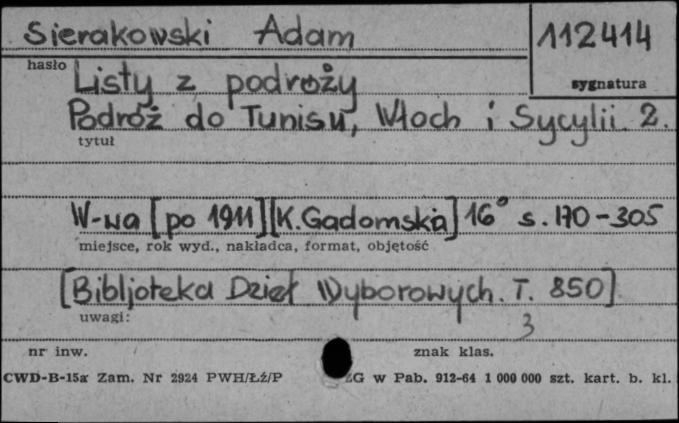 Sierakowski Adam
112414
hasło
sygnatura
Listy z podróży
Podróż do Tunisu, Włoch i Sycylii. 2.
tytuł
W-wa [po 1911] [K. Gadomska] 16° s. 170-305
miejsce, rok wyd., nakładca, format, objętość
[Bibljoteka Dzieł Wyborowych. T. 850]
uwagi:
3
nr inw.
znak klas.
CWD-B-15a Zam. Nr 2924 PWH/Łź/P
ZG w Pab. 912-64 1 000 000 szt. kart. b. kl.